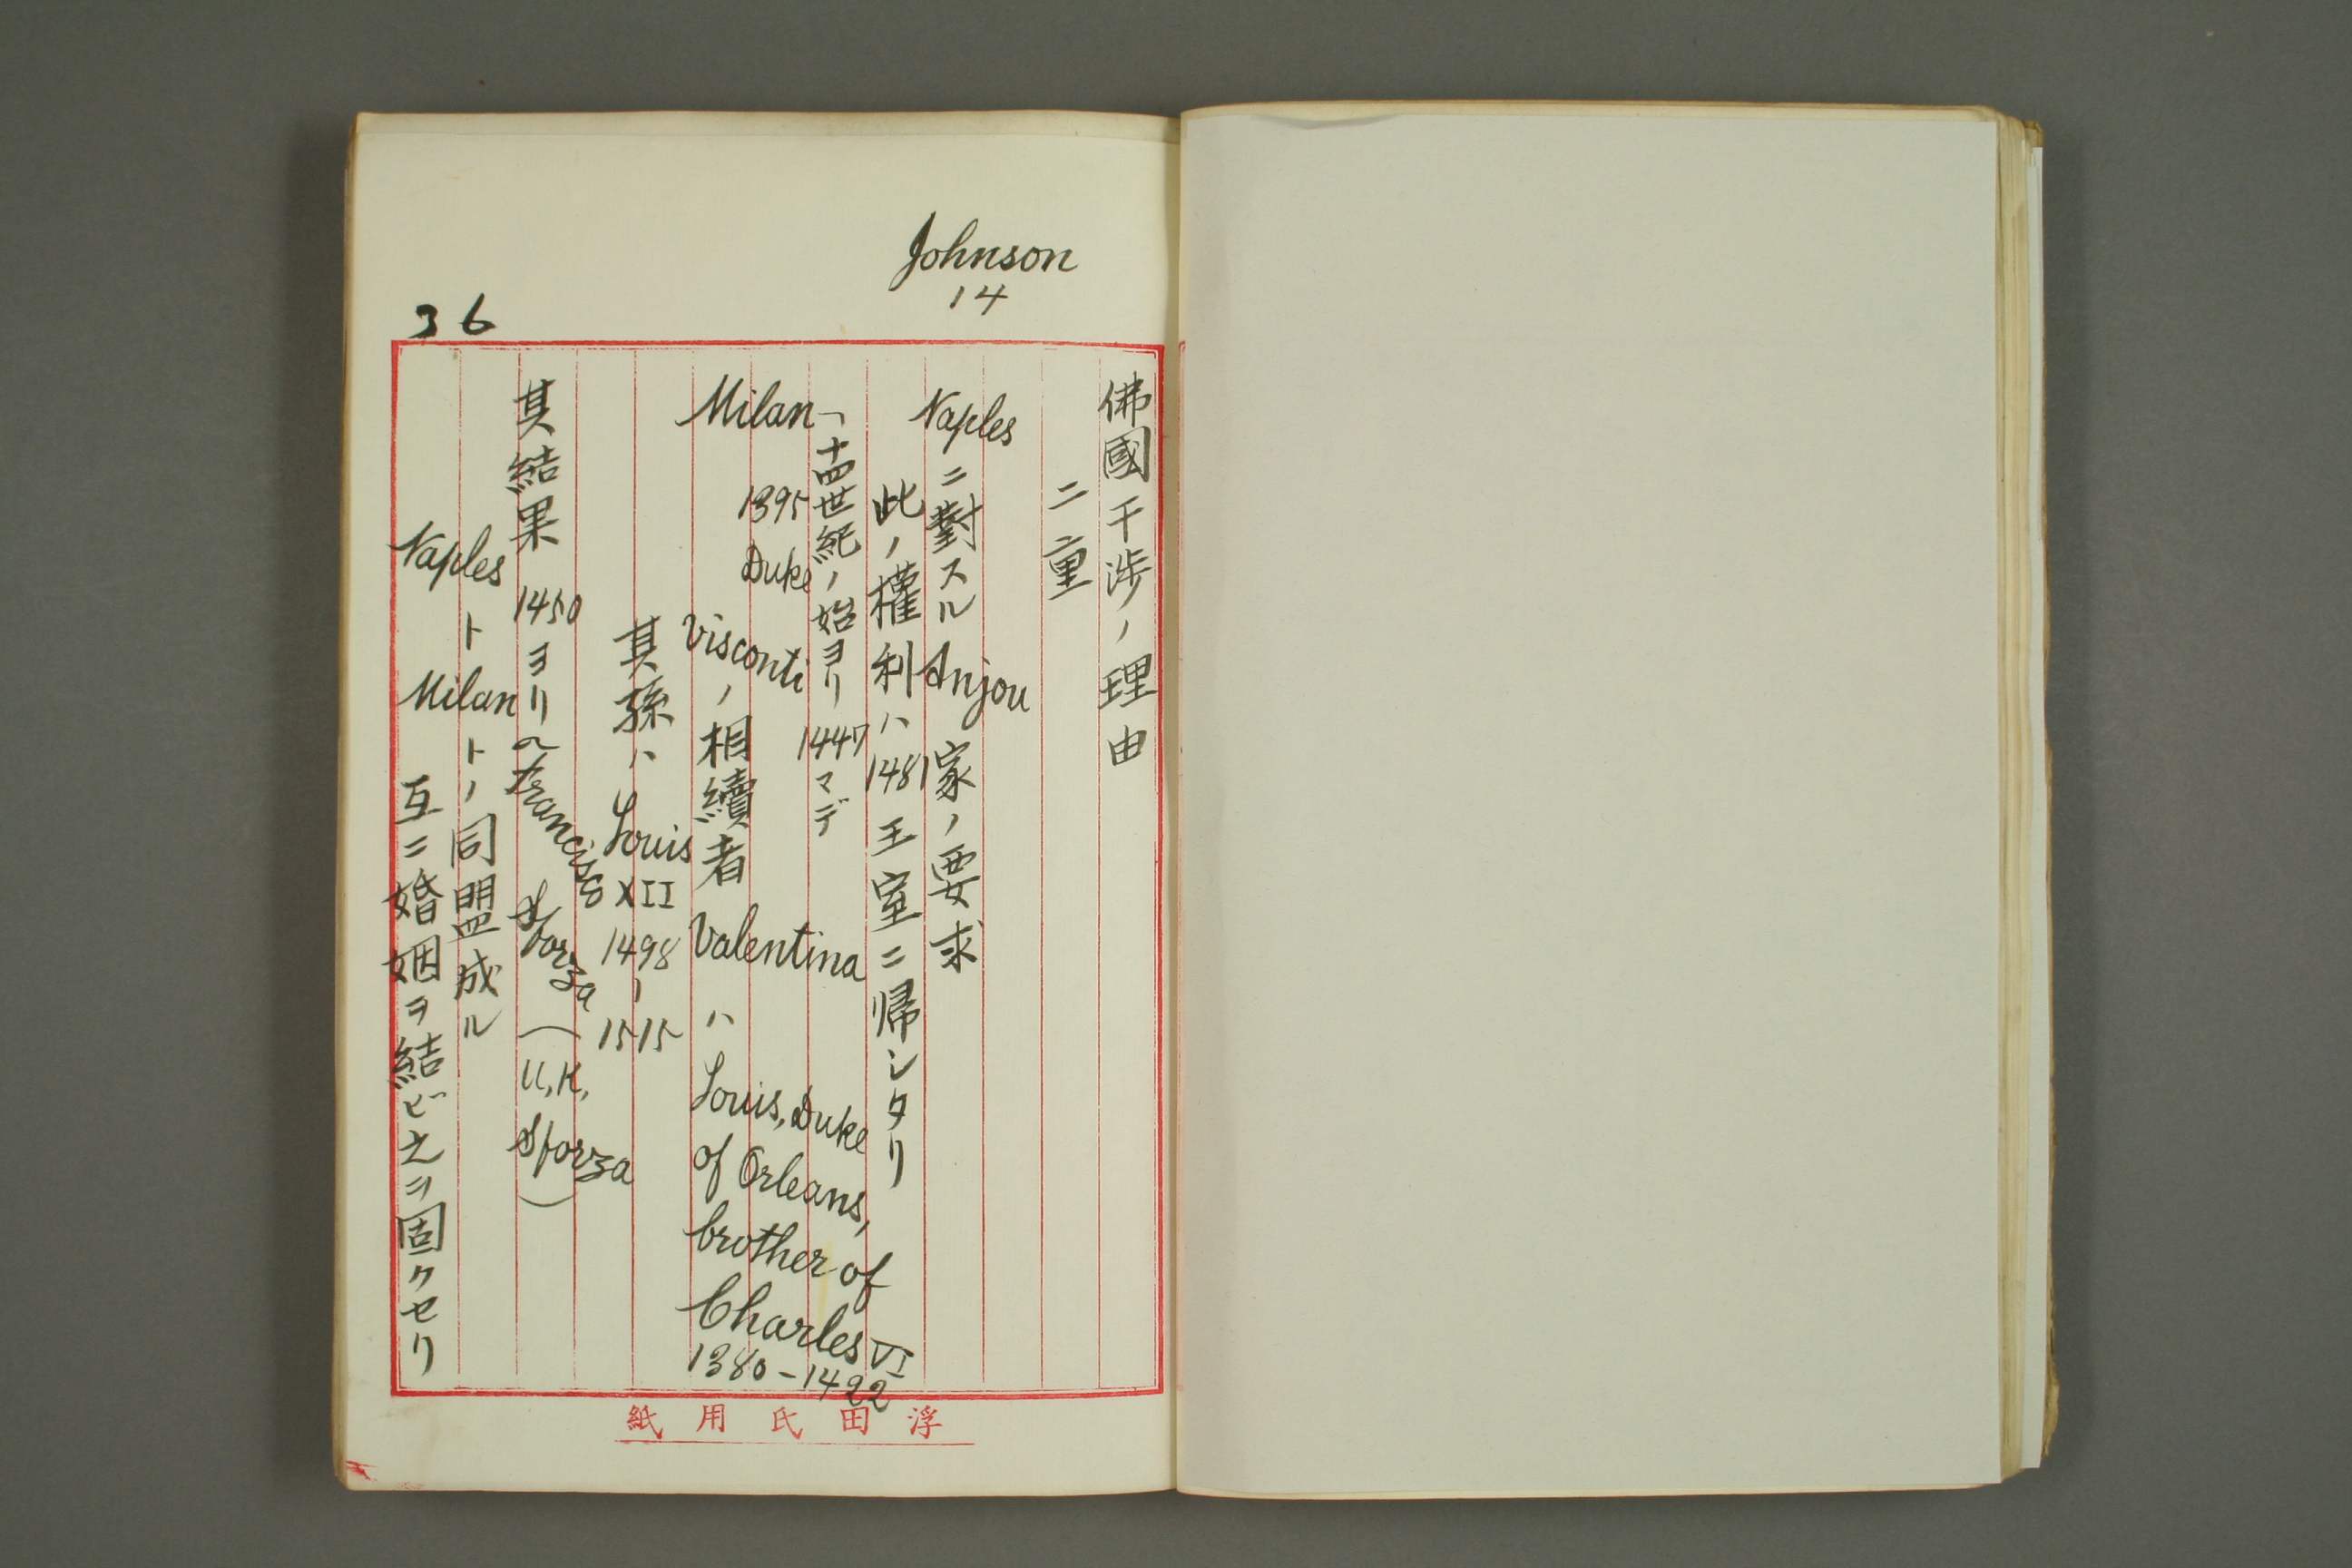 Johnson
14
36
佛國干渉ノ理由
二重
Naples ニ對スル Anjou 家ノ要求
此ノ權利ハ 1481 王室ニ帰シタリ
Milan 「十四世紀ノ始ヨリ 1447 マデ
1395
Duke
Visconti ノ相續者 Valentina ハ Louis, Duke
of Orleans,
brother of
Charles VI
1380-1422
其孫ハ Louis
XII
1498
ー
1515
其結果 1450 ヨリ Francisco Sforza (U.K. Sforza)
Naples ト Milan トノ同盟成ル
互ニ婚姻ヲ結ビ之ヲ固クセリ
浮田氏用紙